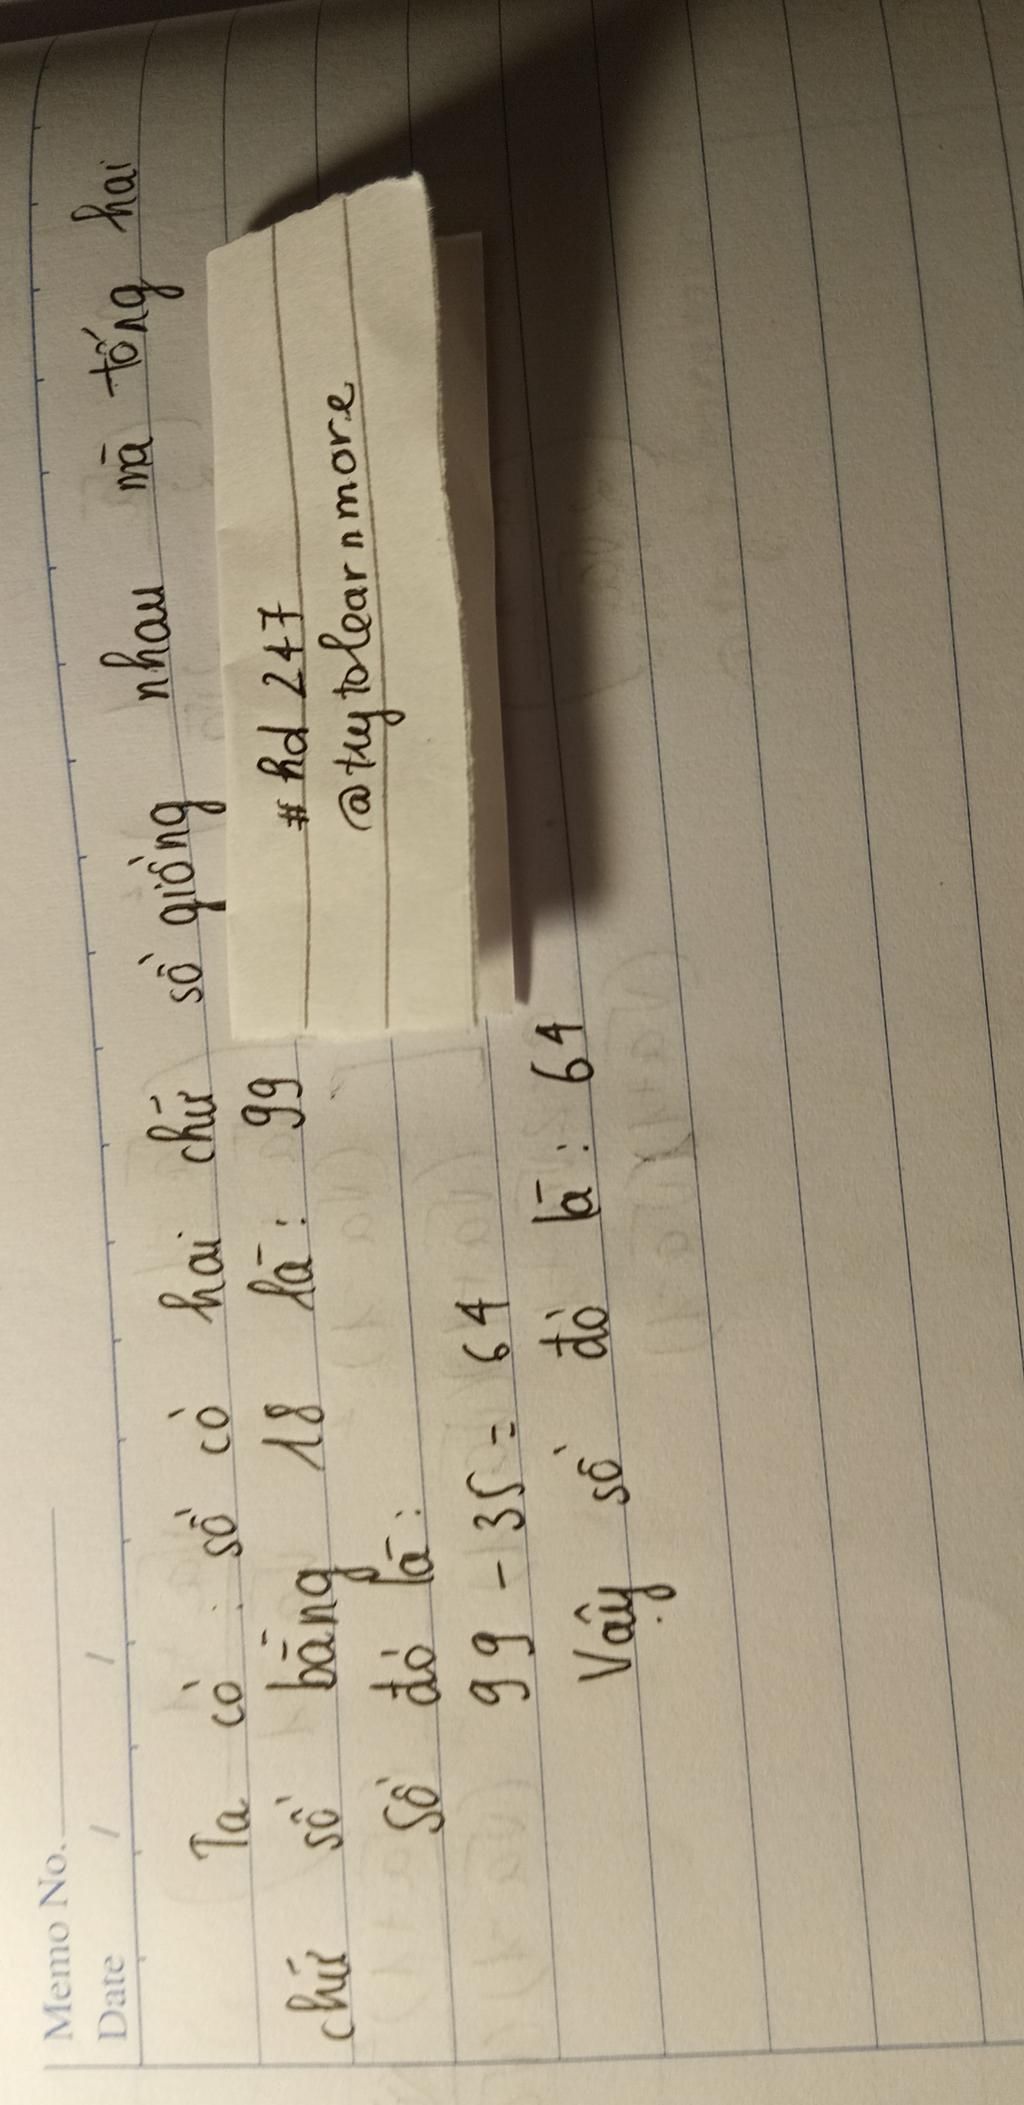 Memo No.
Date / /
Ta có : số có hai chữ số giống nhau mà tổng hai
chữ số bằng 18 là : 99
Số đó là :
99 - 35 = 64
Vậy số đó là : 64
# hd 247
@trytolearnmore